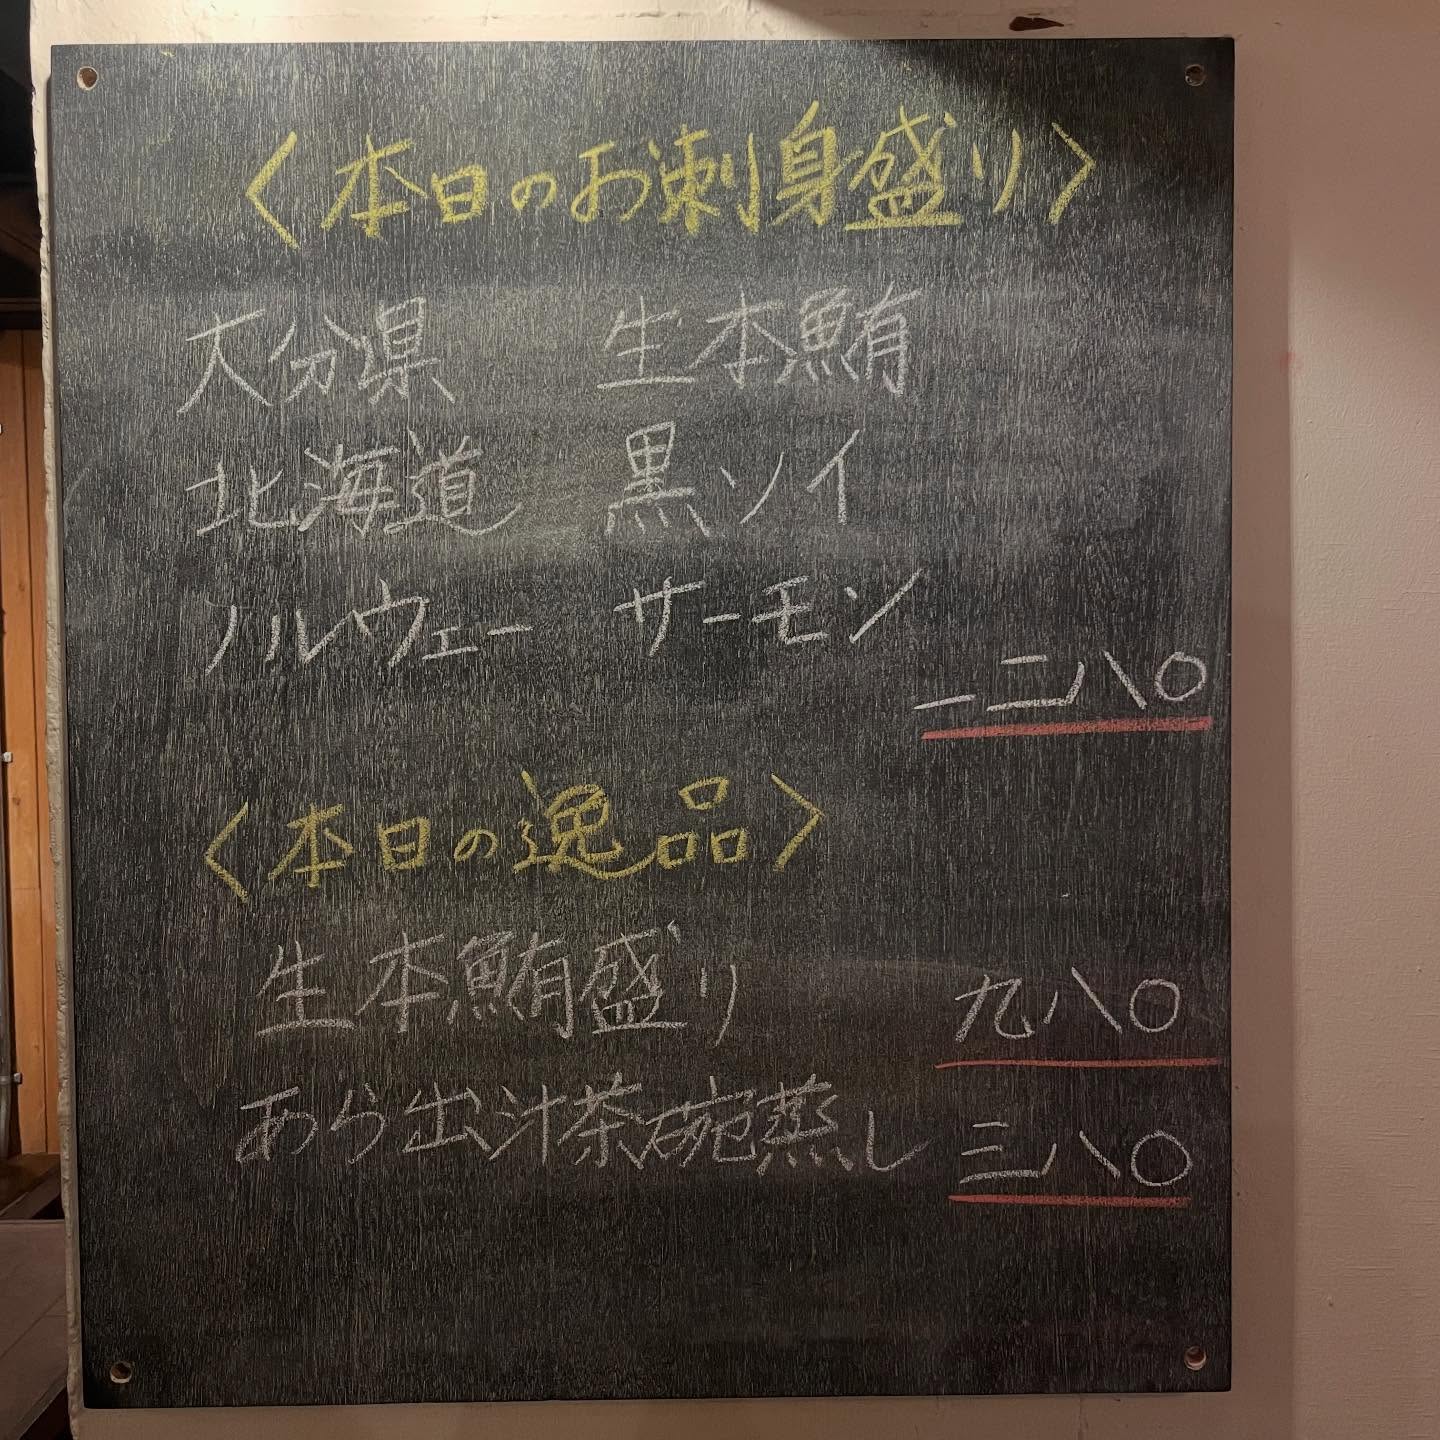 〈本日のお刺身盛り〉
大分県 生本鮪
北海道 黒ソイ
ノルウェー サーモン
一二八〇
〈本日の逸品〉
生本鮪盛り 九八〇
あら出汁茶碗蒸し 三八〇